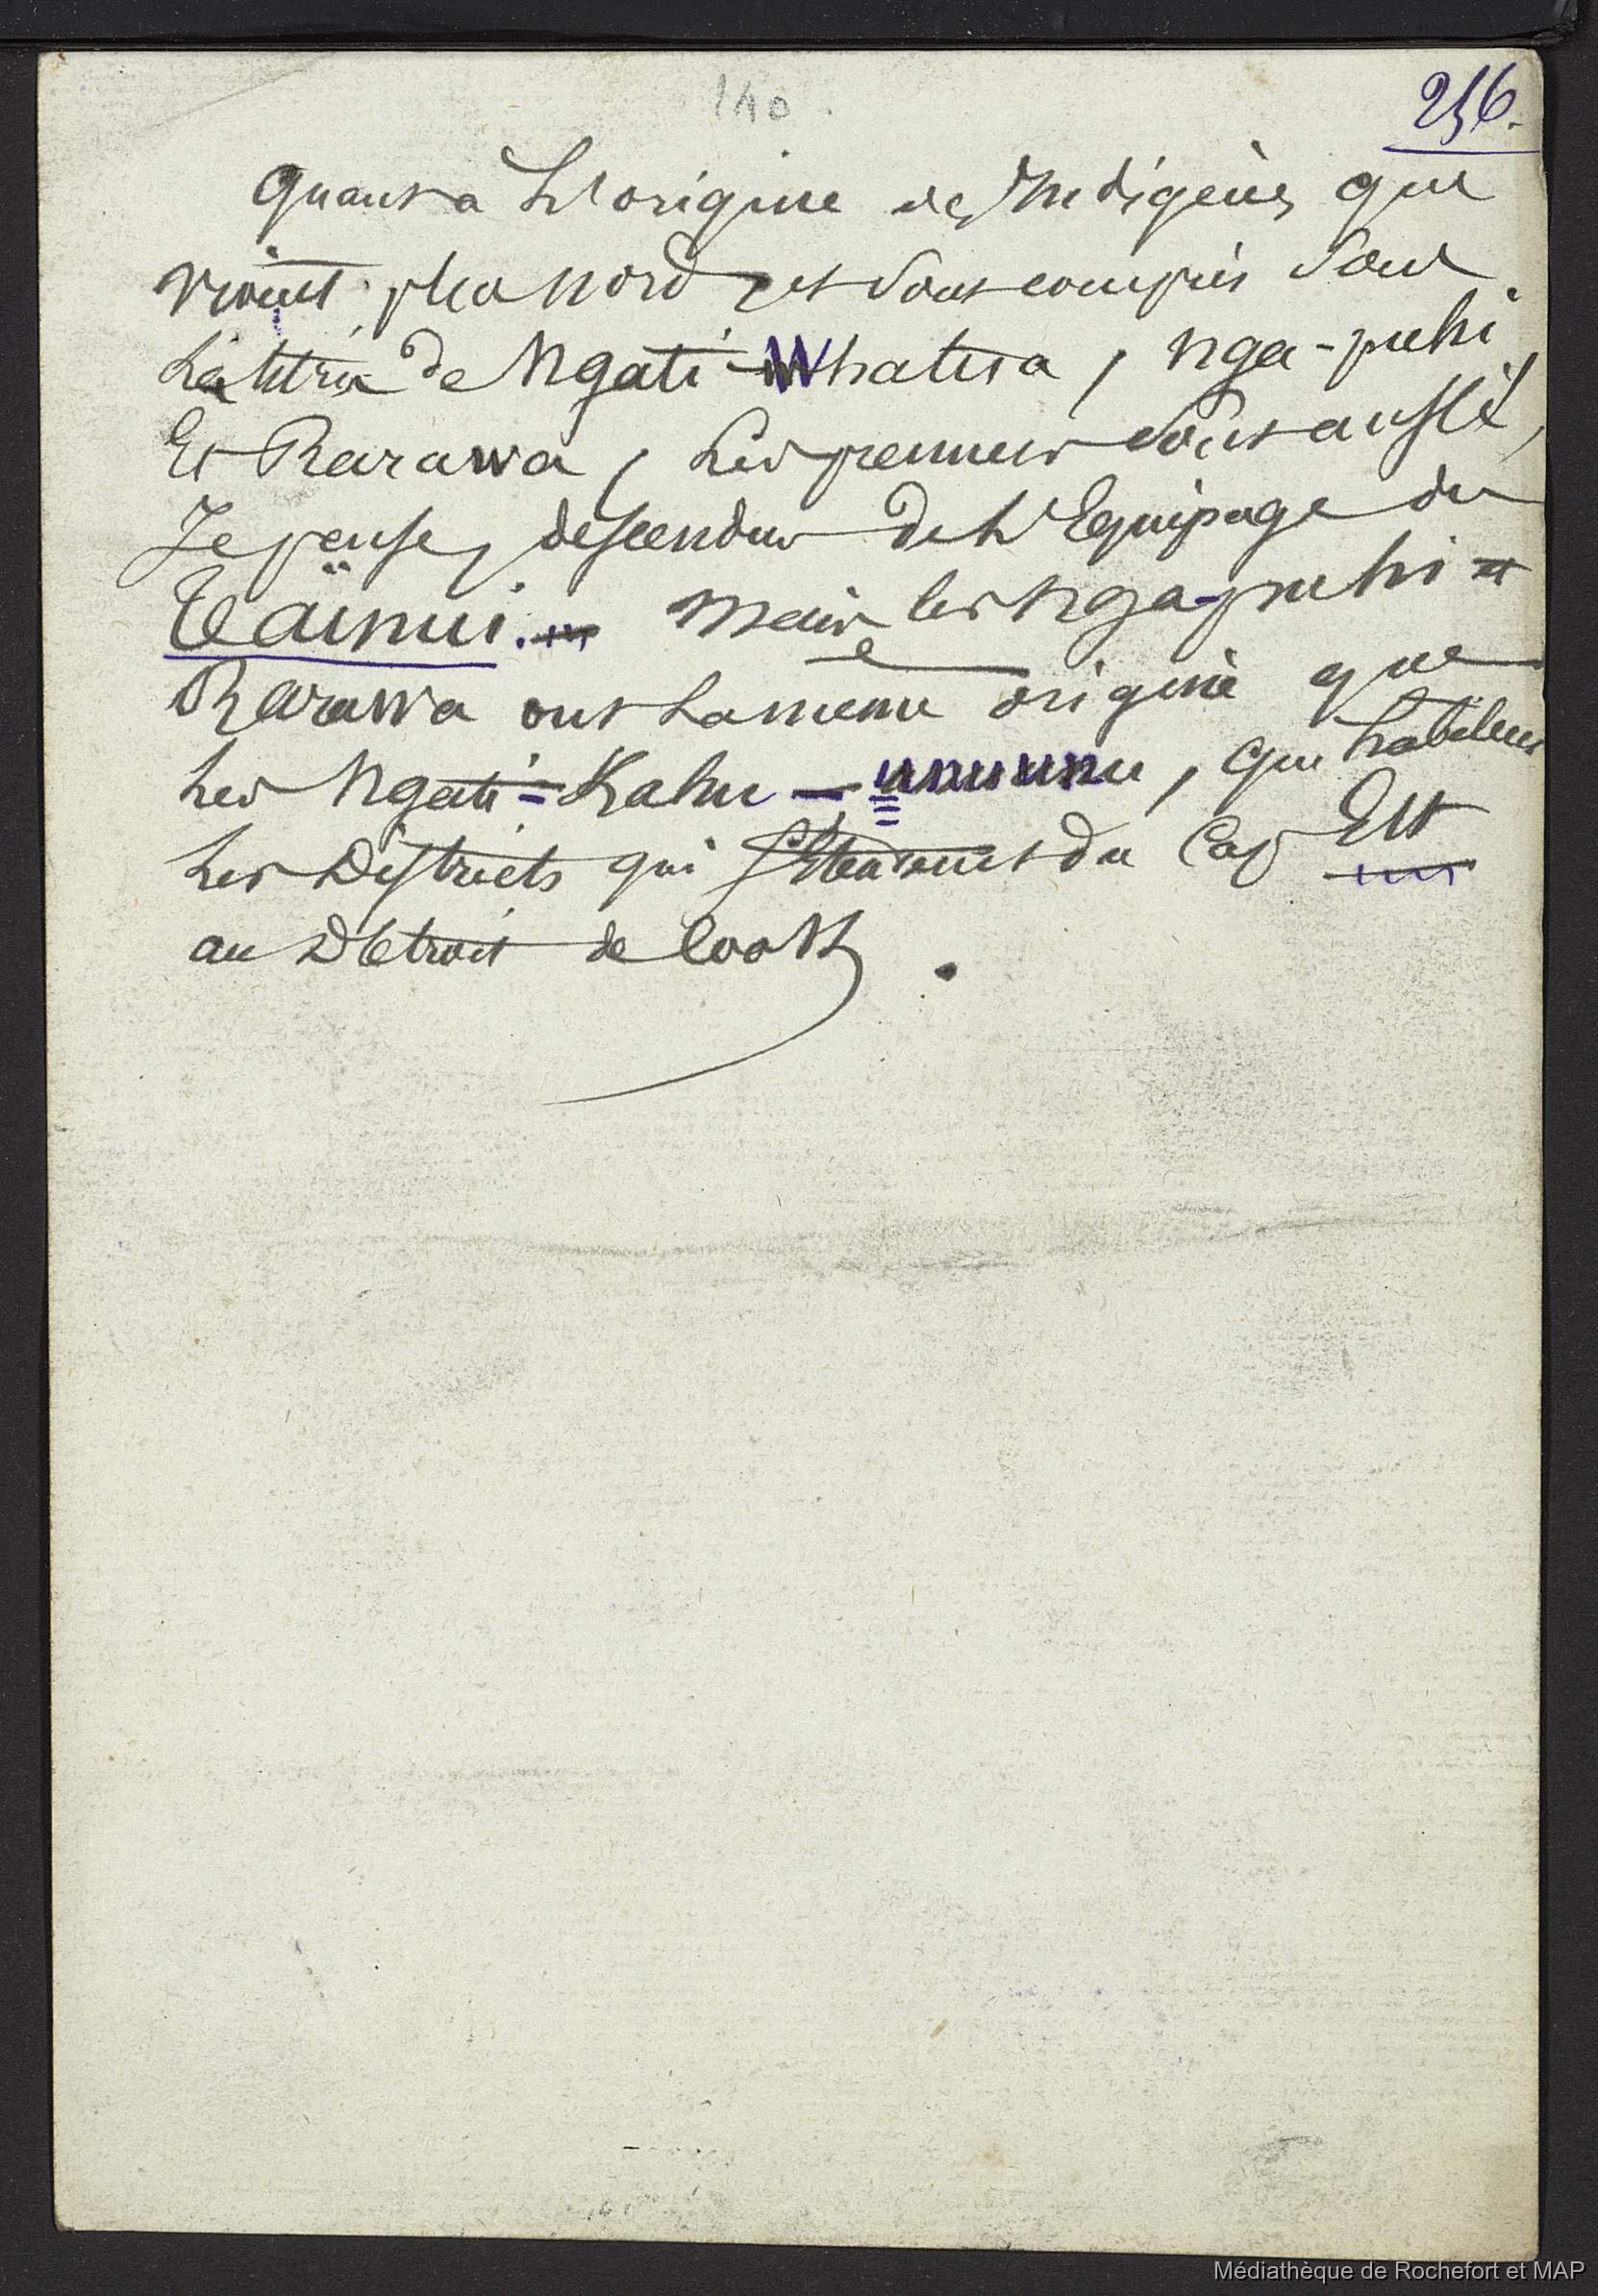 140.
256.
Quant a L'origine des Indigènes qui
vivent plus nord et sont compris sous
le titre de Ngati-Whatua, Nga-puhi
Et Rarawa, Les premiers sont aussi,
Je pense, descendus de L'Equipage du
Taïnui. Mais les Nga-puhi et
Rarawa ont La même origine que
Les Ngati-Kahu-unuunu, qui habitent
Les Districts qui s'étendent du Cap Est
au Détroit de Cook.
Médiathèque de Rochefort et MAP